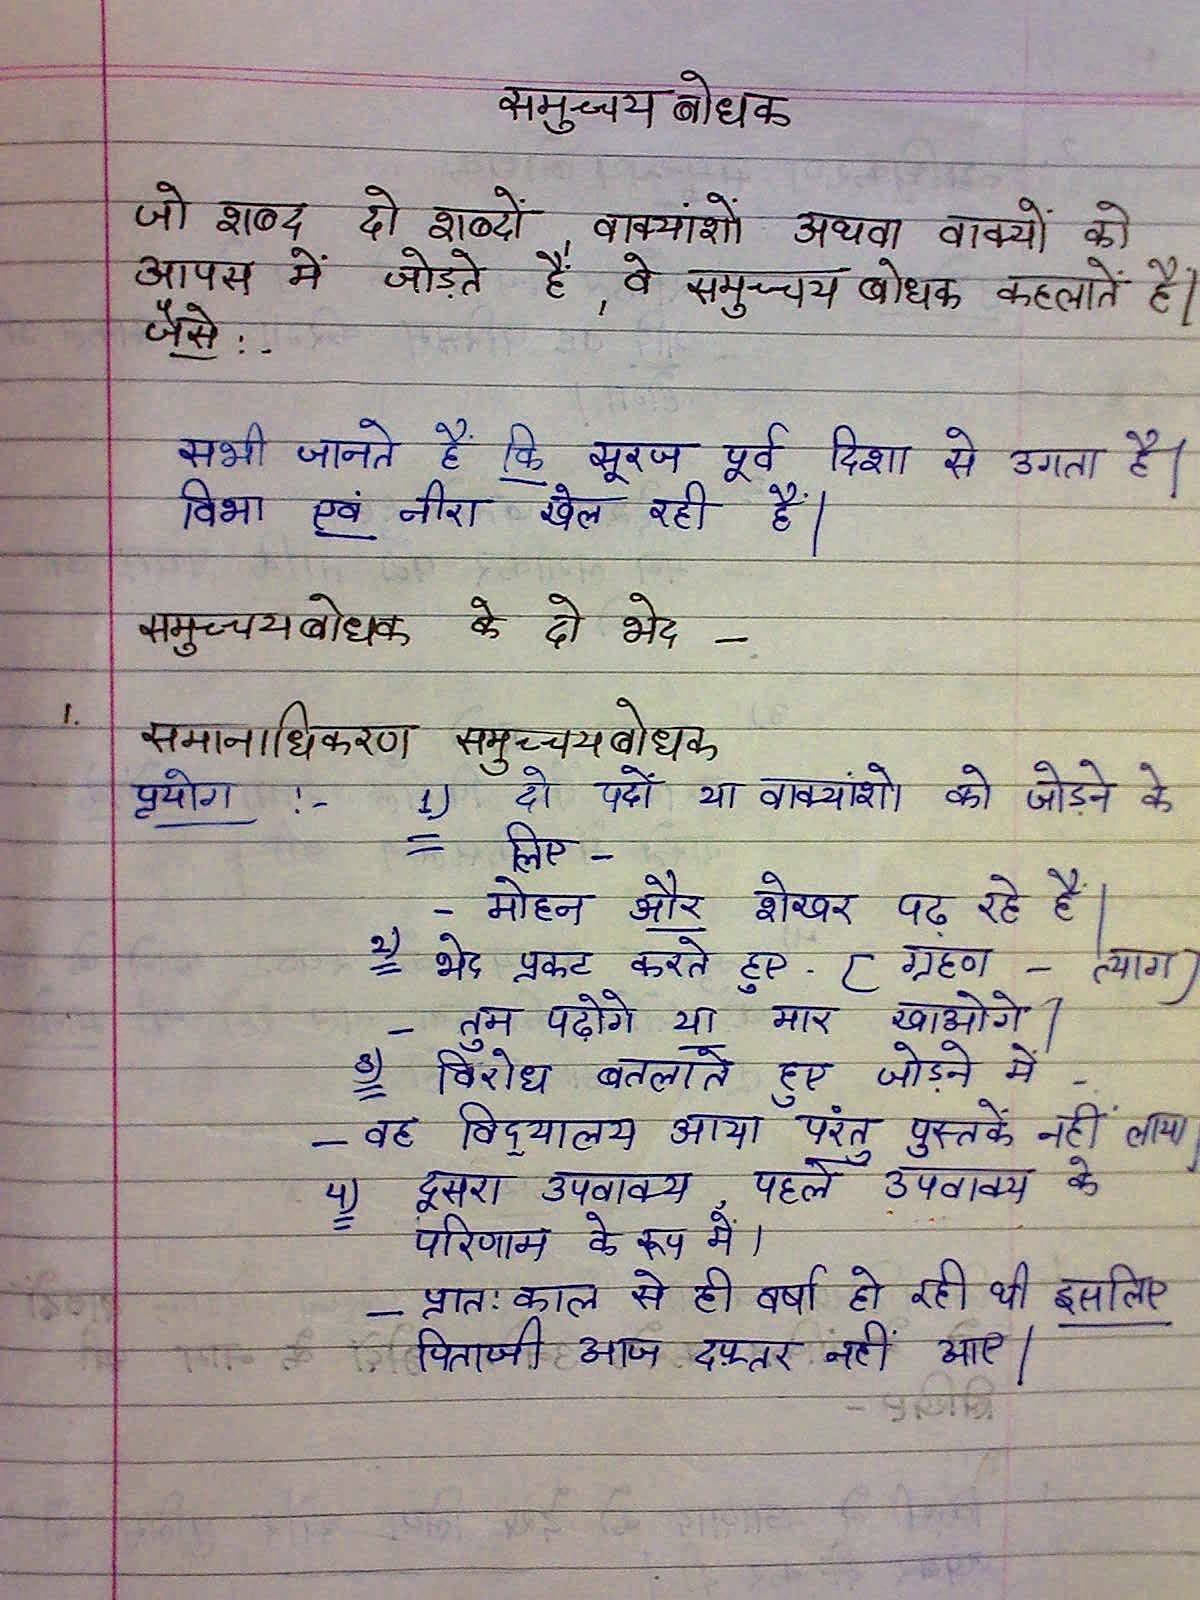 समुच्चय बोधक
जो शब्द दो शब्दों, वाक्यांशों अथवा वाक्यों को
आपस में जोड़ते हैं, वे समुच्चय बोधक कहलातें है।
जैसे :-
सभी जानते हैं कि सूरज पूर्व दिशा से उगता है।
विभा एवं नीरा खेल रही हैं।
समुच्चयबोधक के दो भेद -
1. समानाधिकरण समुच्चयबोधक
प्रयोग :- 1) दो पदों या वाक्यांशो को जोड़ने के
लिए -
- मोहन और शेखर पढ़ रहे हैं।
2) भेद प्रकट करते हुए - ( ग्रहण - त्याग)
- तुम पढ़ोगे या मार खाओगे।
3) विरोध बतलाते हुए जोड़ने में -
- वह विद्यालय आया परंतु पुस्तकें नहीं लाया।
4) दूसरा उपवाक्य, पहले उपवाक्य के
परिणाम के रूप में।
- प्रात:काल से ही बर्षा हो रही थी इसलिए
पिताजी आज दफ़्तर नहीं आए।